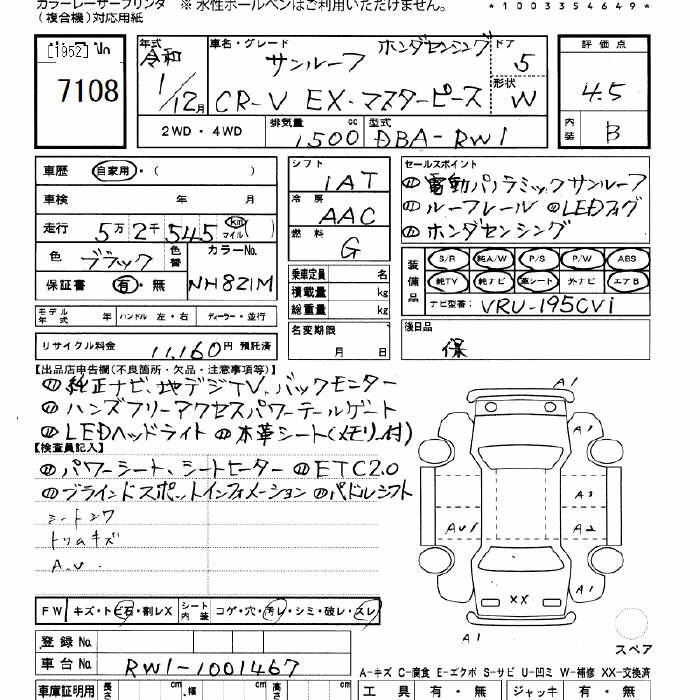 カラーレーザープリンタ ※ 水性ボールペンはご利用いただけません。 *1003354649*
(複合機)対応用紙
[1952] No
7108
年式 令和 1/12月
車名・グレード サンルーフ ホンダセンシング
CR-V EX・マスターピース
ドア 5
形状 W
評価点 4.5
内装 B
2WD・4WD
排気量 1500 cc
型式 DBA-RW1
車歴 自家用・( )
車検 年 月
走行 5万2千545 km マイル( )
色 ブラック 色替 カラーNo. NH821M
保証書 有・無
シフト IAT
冷房 AAC
燃料 G
乗車定員 名
積載量 kg
総重量 kg
名変期限 月 日
セールスポイント
電動パノラミックサンルーフ
ルーフレール LEDフォグ
ホンダセンシング
装備品 S/R 純A/W P/S P/W ABS
純TV 純ナビ 革シート 外ナビ エアB
ナビ型番: VRU-195CVi
モデル年式 年 ハンドル 左・右 ディーラー・並行
リサイクル料金 11,160円 預託済
後日品 保
【出品店申告欄(不良箇所・欠品・注意事項等)】
純正ナビ、地デジTV、バックモニター
ハンズフリーアクセスパワーテールゲート
LEDヘッドライト 本革シート(メモリー付)
【検査員記入】
パワーシート、シートヒーター ETC2.0
ブラインドスポットインフォメーション パドルシフト
シートシワ
トリムキズ
A.U.
A1
A1
A3
AU1 A2
XX
A1 A1
スペア
FW キズ・トビ石・割レX シート内装 コゲ・穴・汚レ・シミ・破レ・スレ
登録 No.
車台 No. RW1-1001467
A-キズ C-腐食 E-エクボ S-サビ U-凹ミ W-補修 XX-交換済
車庫証明用 長さ cm 幅 cm 高さ cm
工具 有・無 ジャッキ 有・無